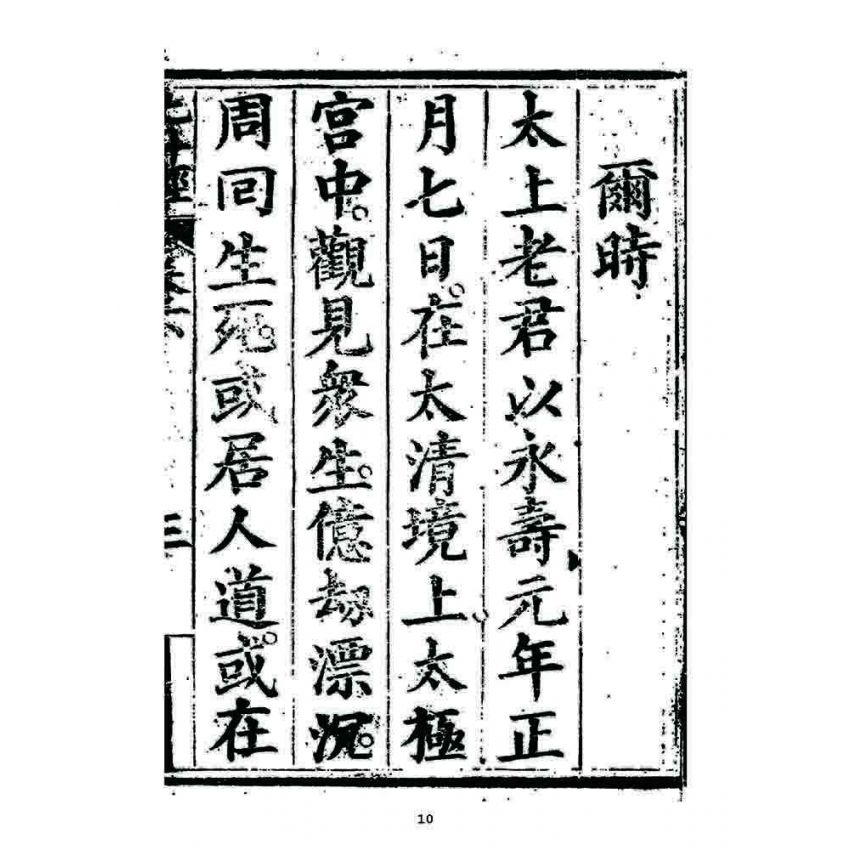 爾時
太上老君以永壽元年正
月七日。在太清境上太極
宮中。觀見衆生。億劫漂沉。
周回生死。或居人道。或在
三
10